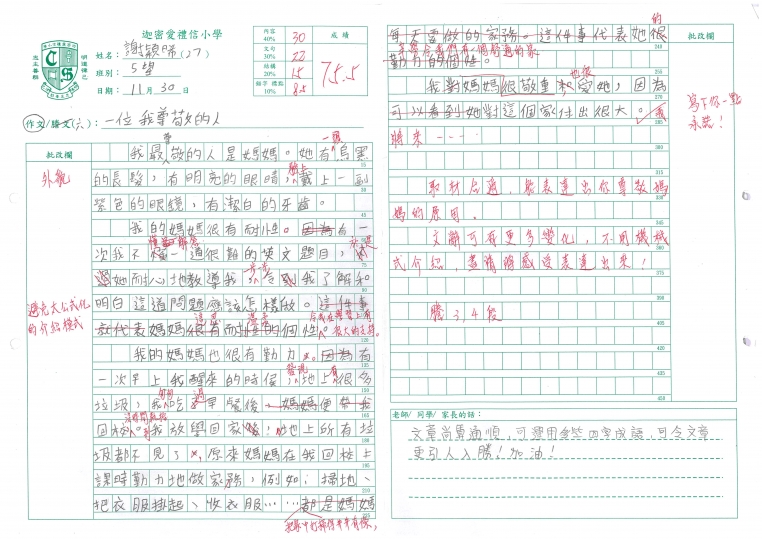 迦密愛禮信小學
姓名：謝穎晞(27)
班別：5望
日期：11月30日
內容 40% 30
文句 30% 22
結構 20% 15
擷字 標點 10% 8.5
成績
75.5
作文/謄文(六)：一位我尊敬的人
批改欄
外觀
避免太公式化
的介紹模式
我最尊敬的人是媽媽。她有一頭烏黑
的長髮，有明亮的眼睛，臉上戴上一副
紫色的眼鏡，有潔白的牙齒。
我的媽媽很有耐性。因為有一
次我不懂一道很難的英文題目，
她耐心地教導我，令我了解和
明白這道問題應該怎樣做。這件事
代表媽媽很有耐性的個性。
我的媽媽也很有勤力。因為有
一次早上我醒來的時候，發現地上有很多
垃圾，我吃過早餐後，媽媽便帶我
回校。我放學回家後，地上所有垃
圾都不見了，原來媽媽在我回校上
課時勤力地做家務，例如：掃地、
把衣服掛起、收衣服……都是媽媽
把家中打掃得井井有條，
每天要做的家務。這件事代表她的很
勤力的個性。
我對媽媽很敬重和愛她，因為
可以看到她對這個家付出很大。我
將來----
批改欄
寫下你一點
承諾！
取材合適，能表達出你尊敬媽
媽的原因。
文辭可有更多變化，不用機械
式介紹，盡情將感受表達出來！
謄3,4段
老師/ 同學/ 家長的話：
文章尚算通順，可運用多些四字成語，可令文章
更引人入勝！加油！